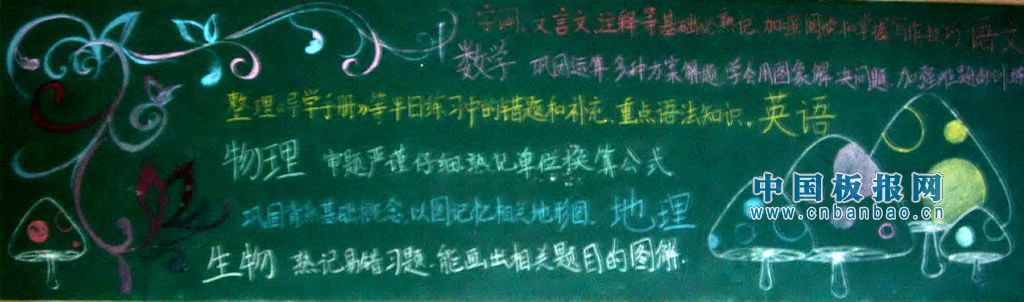 字词、文言文、注释等基础必熟记,加强阅读和掌握写作技巧 语文
数学 巩固运算多种方案解题,学会用图象解决问题,加强难题的训练
整理《导学手册》等平日练习中的错题和补充,重点语法知识。英语
物理 审题严谨仔细熟记单位换算公式
巩固 基础概念,以图记忆相关地形图. 地理
生物 熟记易错习题,能画出相关题目的图解.
中国板报网
www.cnbanbao.cn